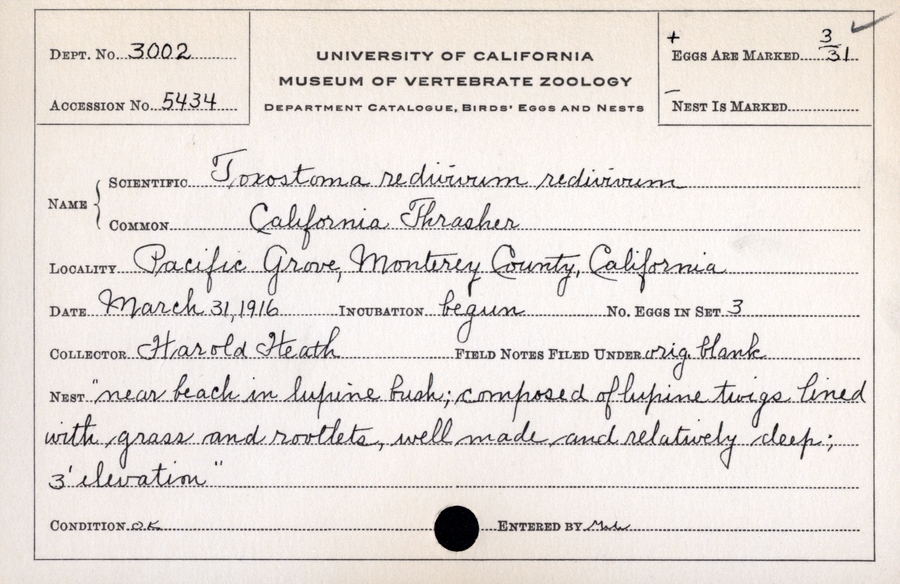 DEPT. NO. 3002
ACCESSION NO. 5434
UNIVERSITY OF CALIFORNIA
MUSEUM OF VERTEBRATE ZOOLOGY
DEPARTMENT CATALOGUE, BIRDS' EGGS AND NESTS
+
EGGS ARE MARKED 3/31
—
NEST IS MARKED
NAME { SCIENTIFIC Toxostoma redivivum redivivum
COMMON California Thrasher
LOCALITY Pacific Grove, Monterey County, California
DATE March 31, 1916 INCUBATION begun NO. EGGS IN SET 3
COLLECTOR Harold Heath FIELD NOTES FILED UNDER orig. blank
NEST "near beach in lupine bush; composed of lupine twigs lined
with grass and rootlets, well made and relatively deep;
3' elevation"
CONDITION OK ENTERED BY